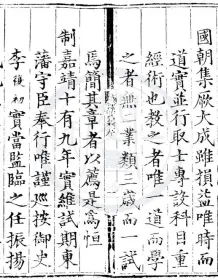 國朝集厥大成雖損益唯時而
道實並行取士專設科目重
經術也教之者唯一道而學
之者無二業類三歲而一試
焉簡其章者以薦是爲恒
制嘉靖十有九年實維試期東
藩守臣奉行唯謹巡按御史
李復初實當監臨之任振揚